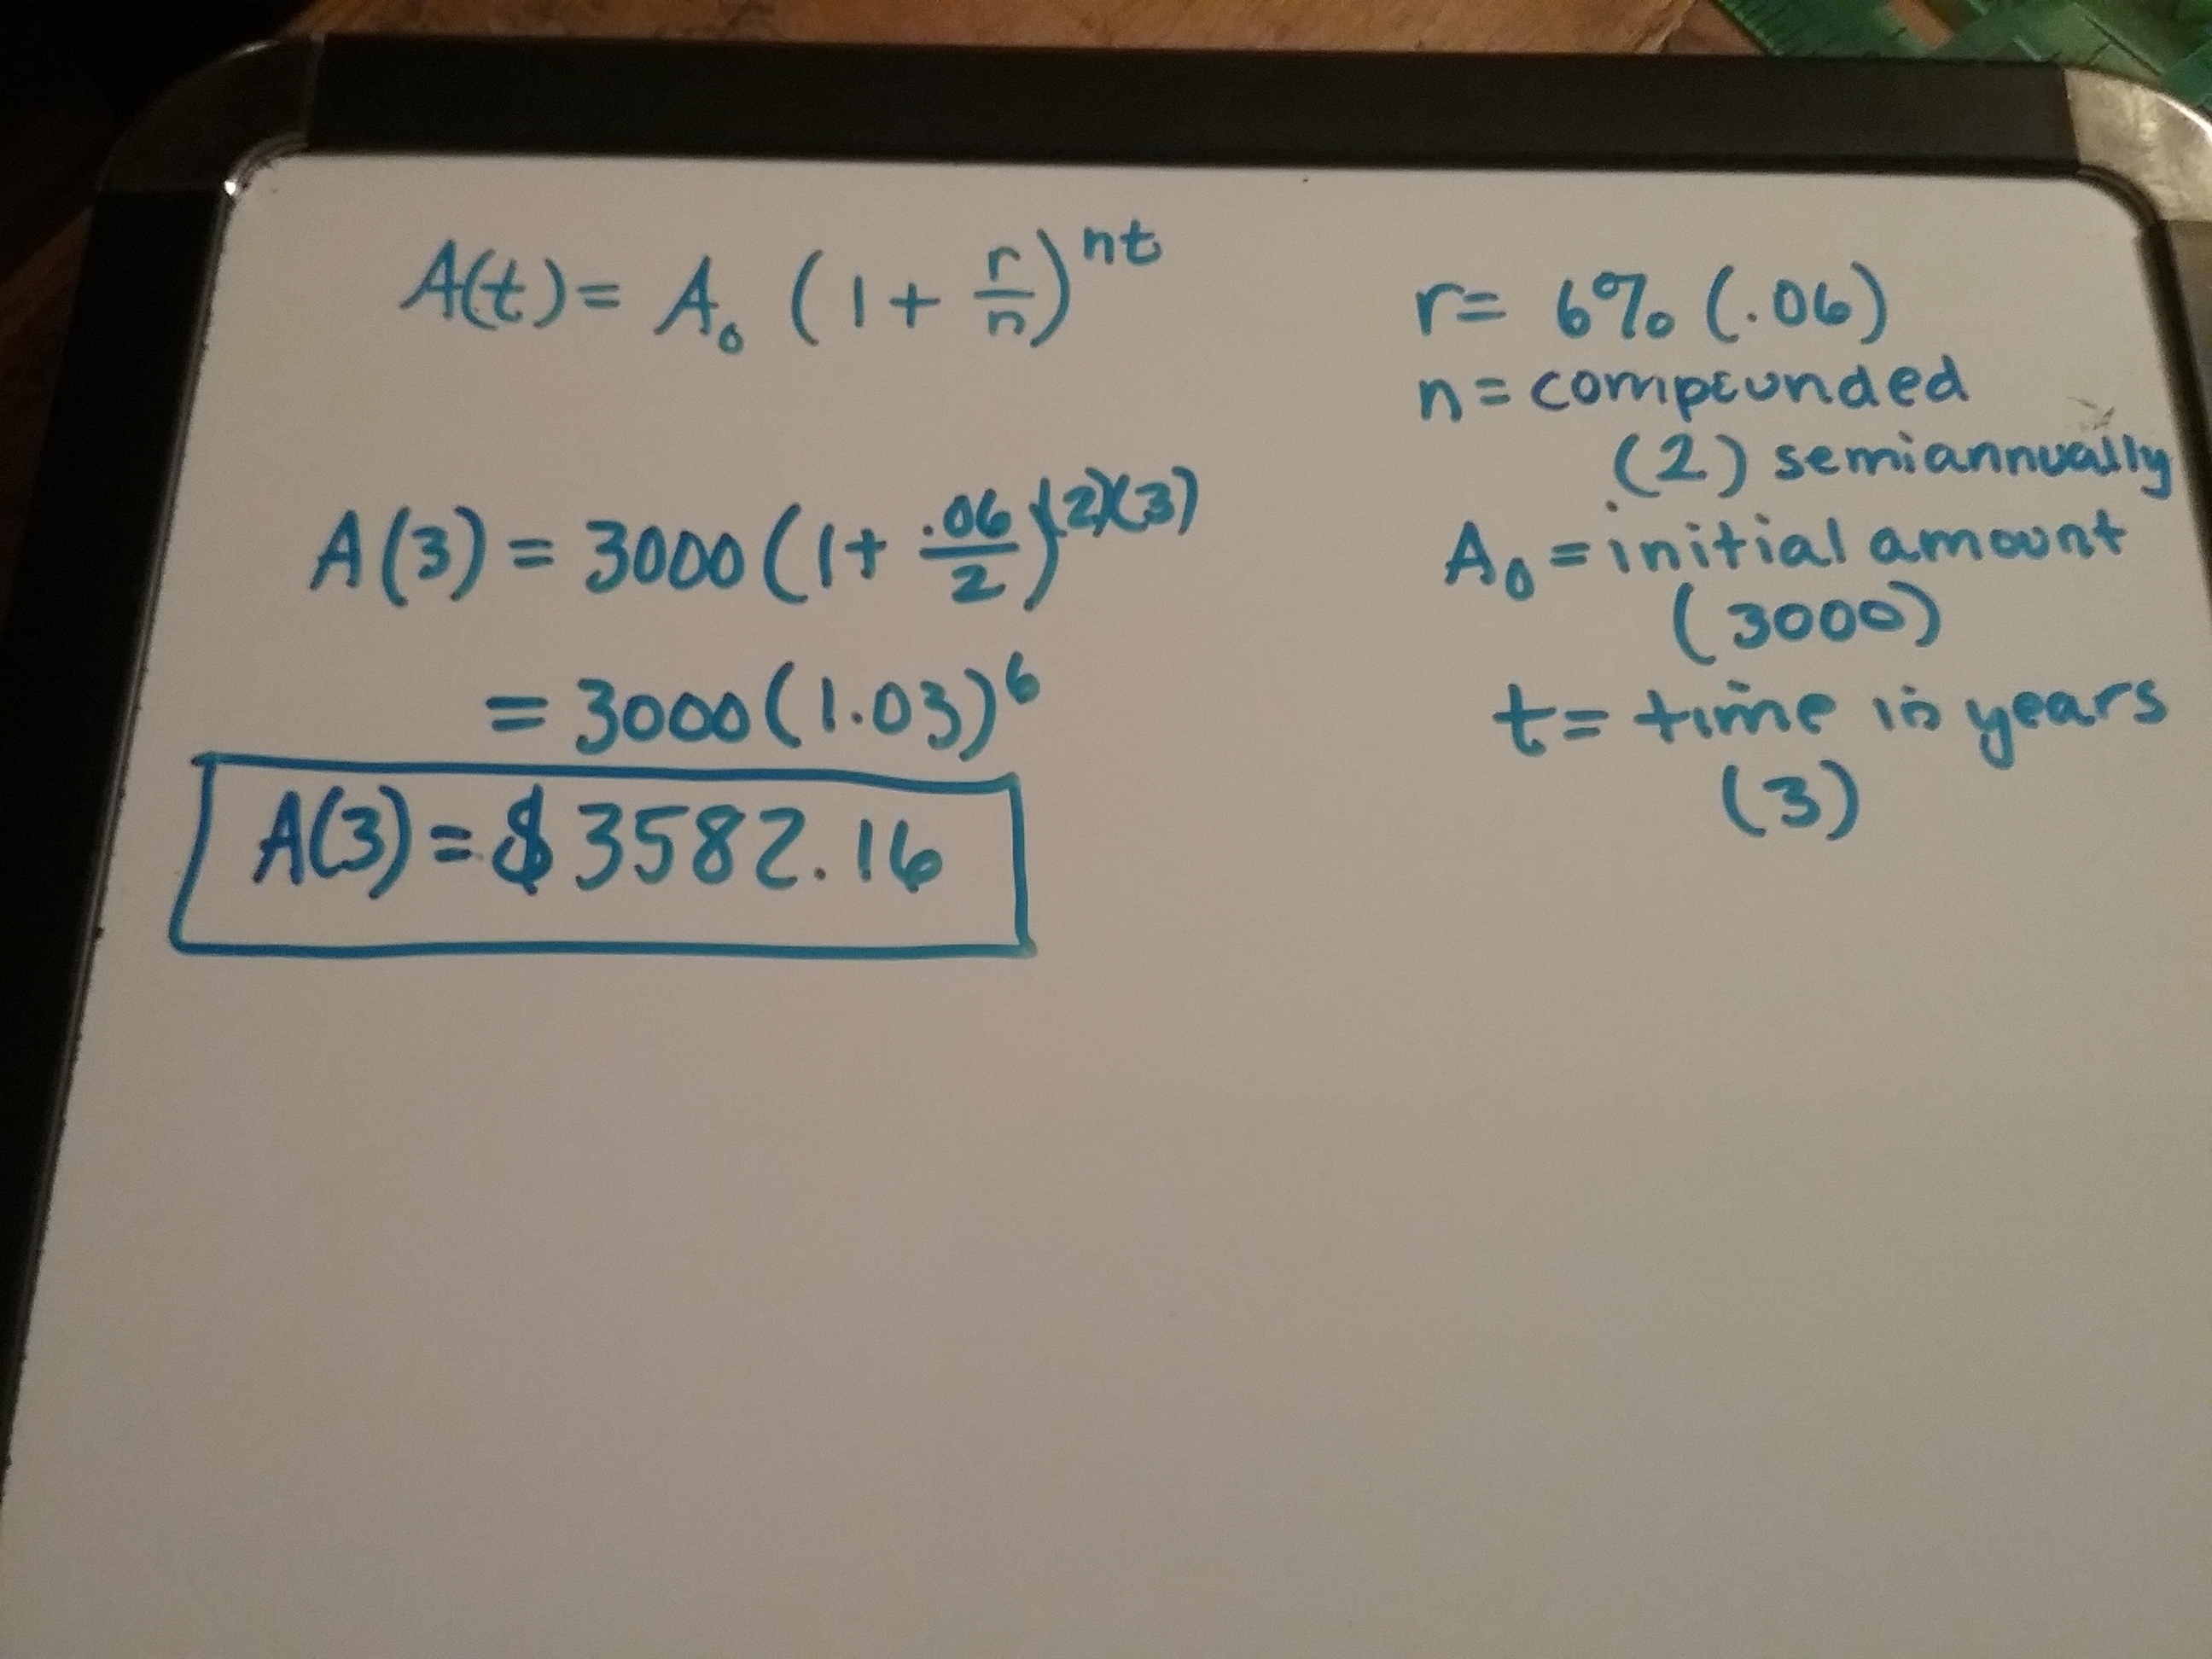 A(t) = A₀ (1 + r/n)^nt
A(3) = 3000 (1 + .06/2)^(2)(3)
= 3000 (1.03)^6
A(3) = $3582.16
r = 6% (.06)
n = compounded
(2) semiannually
A₀ = initial amount
(3000)
t = time in years
(3)